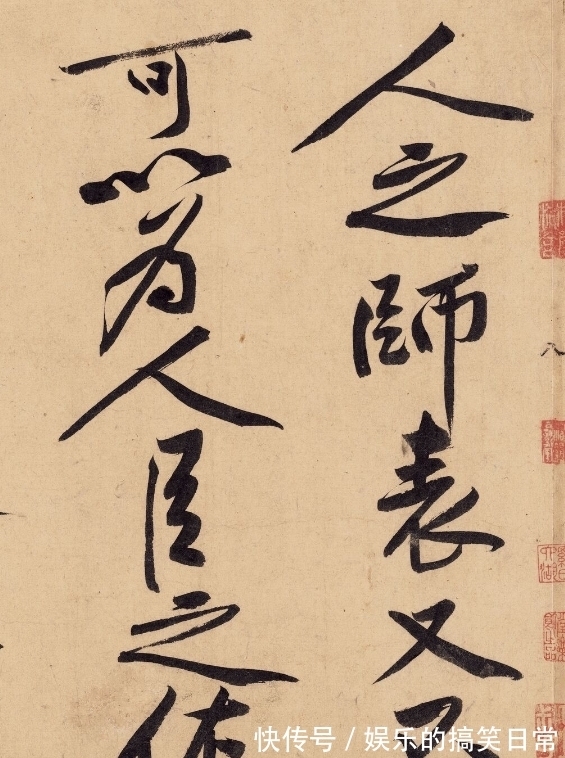 人之師表又不
可以為人臣之佐
快传号 / 娱乐的搞笑日常